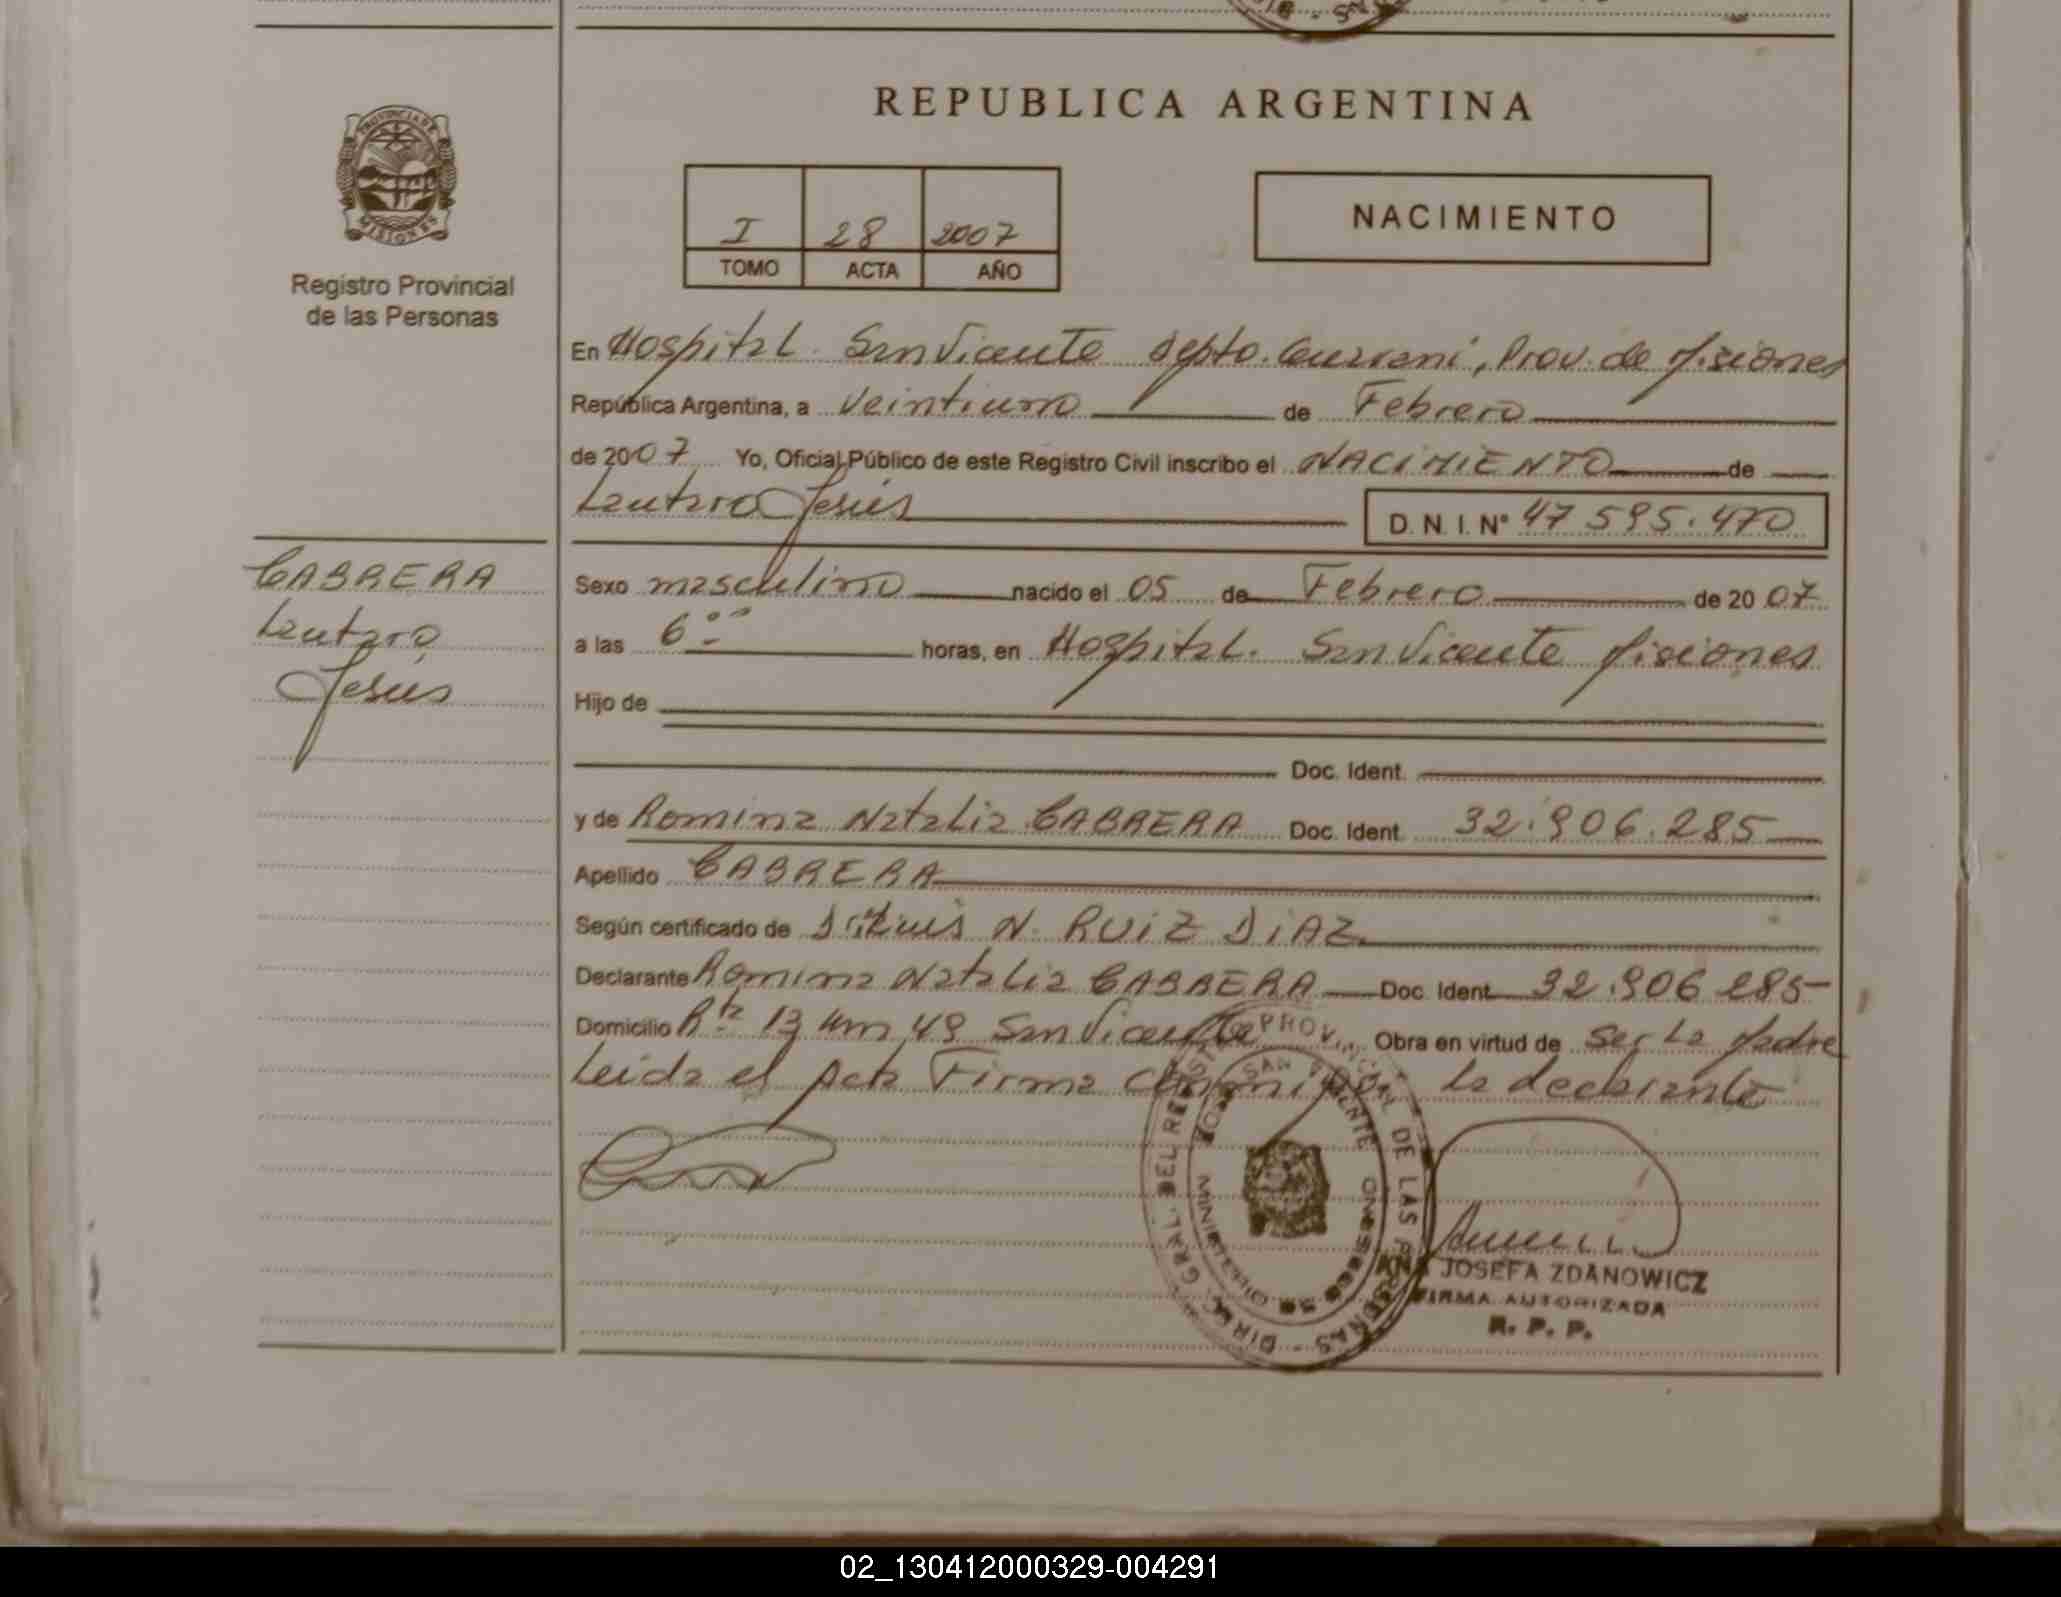 REPUBLICA ARGENTINA
PROVINCIA DE
MISIONES
Registro Provincial
de las Personas
I 28 2007
TOMO ACTA AÑO
NACIMIENTO
En Hospital San Vicente Depto. Guarani, Prov. de Misiones
República Argentina, a Veintiuno de Febrero
de 2007 Yo, Oficial Público de este Registro Civil inscribo el NACIMIENTO de
Lautaro Jesús D. N. I. Nº 47 595.470
CABRERA
Lautaro
Jesús
Sexo masculino nacido el 05 de Febrero de 2007
a las 6 horas, en Hospital. San Vicente Misiones
Hijo de
Doc. Ident.
y de Romina Natalia CABRERA Doc. Ident. 32.906.285
Apellido CABRERA
Según certificado de Dr. Luis N. RUIZ DIAZ
Declarante Romina Natalia CABRERA Doc. Ident. 32.906 285
Domicilio Rta 13 Km 49 San Vicente Obra en virtud de Ser La Madre
Leida el Acta Firma conmigo la declarante
DIR. GRAL. DEL REGISTRO PROVINCIAL DE LAS PERSONAS
SAN VICENTE
JOSEFA ZDANOWICZ
FIRMA AUTORIZADA
R. P. P.
02_130412000329-004291